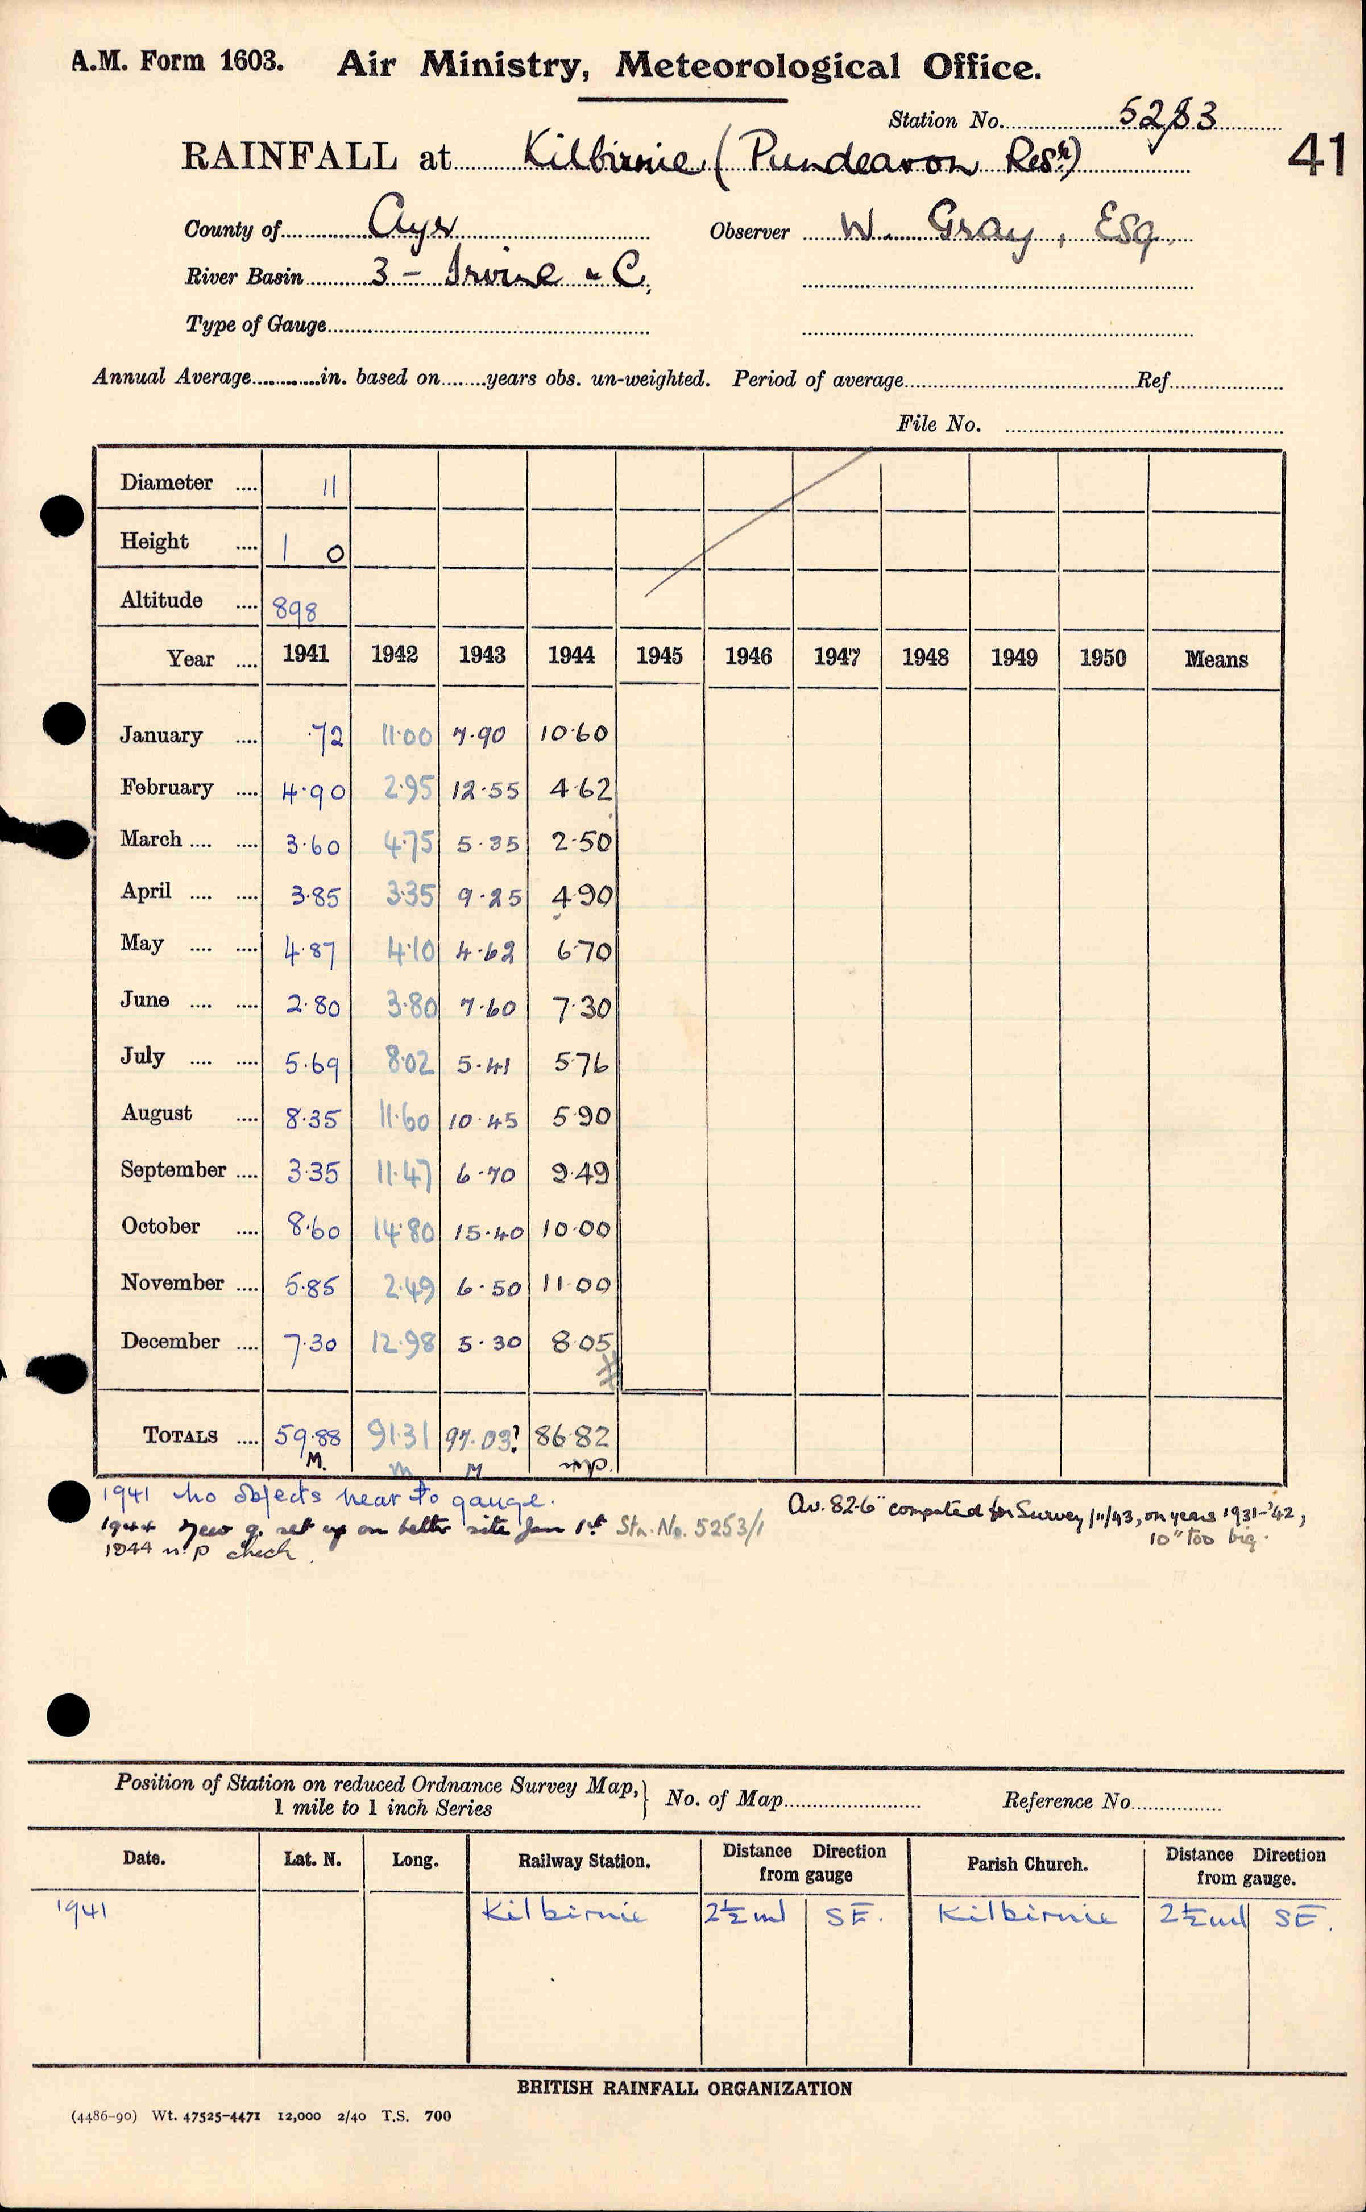 A.M. Form 1603. Air Ministry, Meteorological Office.
Station No. 5253
RAINFALL at Kilbirnie (Pundeavon Resr.) 41
County of Ayr Observer W. Gray, Esq.
River Basin 3 - Irvine & C.
Type of Gauge
Annual Average in. based on years obs. un-weighted. Period of average Ref
File No.
Diameter 11
Height 1 0
Altitude 898
Year 1941 1942 1943 1944 1945 1946 1947 1948 1949 1950 Means
January .72 11.00 7.90 10.60
February 4.90 2.95 12.55 4.62
March 3.60 4.75 5.35 2.50
April 3.85 3.35 9.25 4.90
May 4.87 4.10 4.62 6.70
June 2.80 3.80 7.60 7.30
July 5.69 8.02 5.41 5.76
August 8.35 11.60 10.45 5.90
September 3.35 11.47 6.70 9.49
October 8.60 14.80 15.40 10.00
November 5.85 2.49 6.50 11.00
December 7.30 12.98 5.30 8.05
TOTALS 59.88 91.31 97.03? 86.82
M. M M mp.
1941 no objects near to gauge.
1944 New g. set up on better site Jan 1st Stn. No. 5253/1
1944 n.p check.
Av. 82.6" computed for Survey /11/43, on years 1931-'42,
10" too big.
Position of Station on reduced Ordnance Survey Map, 1 mile to 1 inch Series No. of Map Reference No.
Date. Lat. N. Long. Railway Station. Distance Direction from gauge Parish Church. Distance Direction from gauge.
1941 Kilbirnie 2½ ml SE. Kilbirnie 2½ ml SE.
BRITISH RAINFALL ORGANIZATION
(4486-90) Wt. 47525-4471 12,000 2/40 T.S. 700